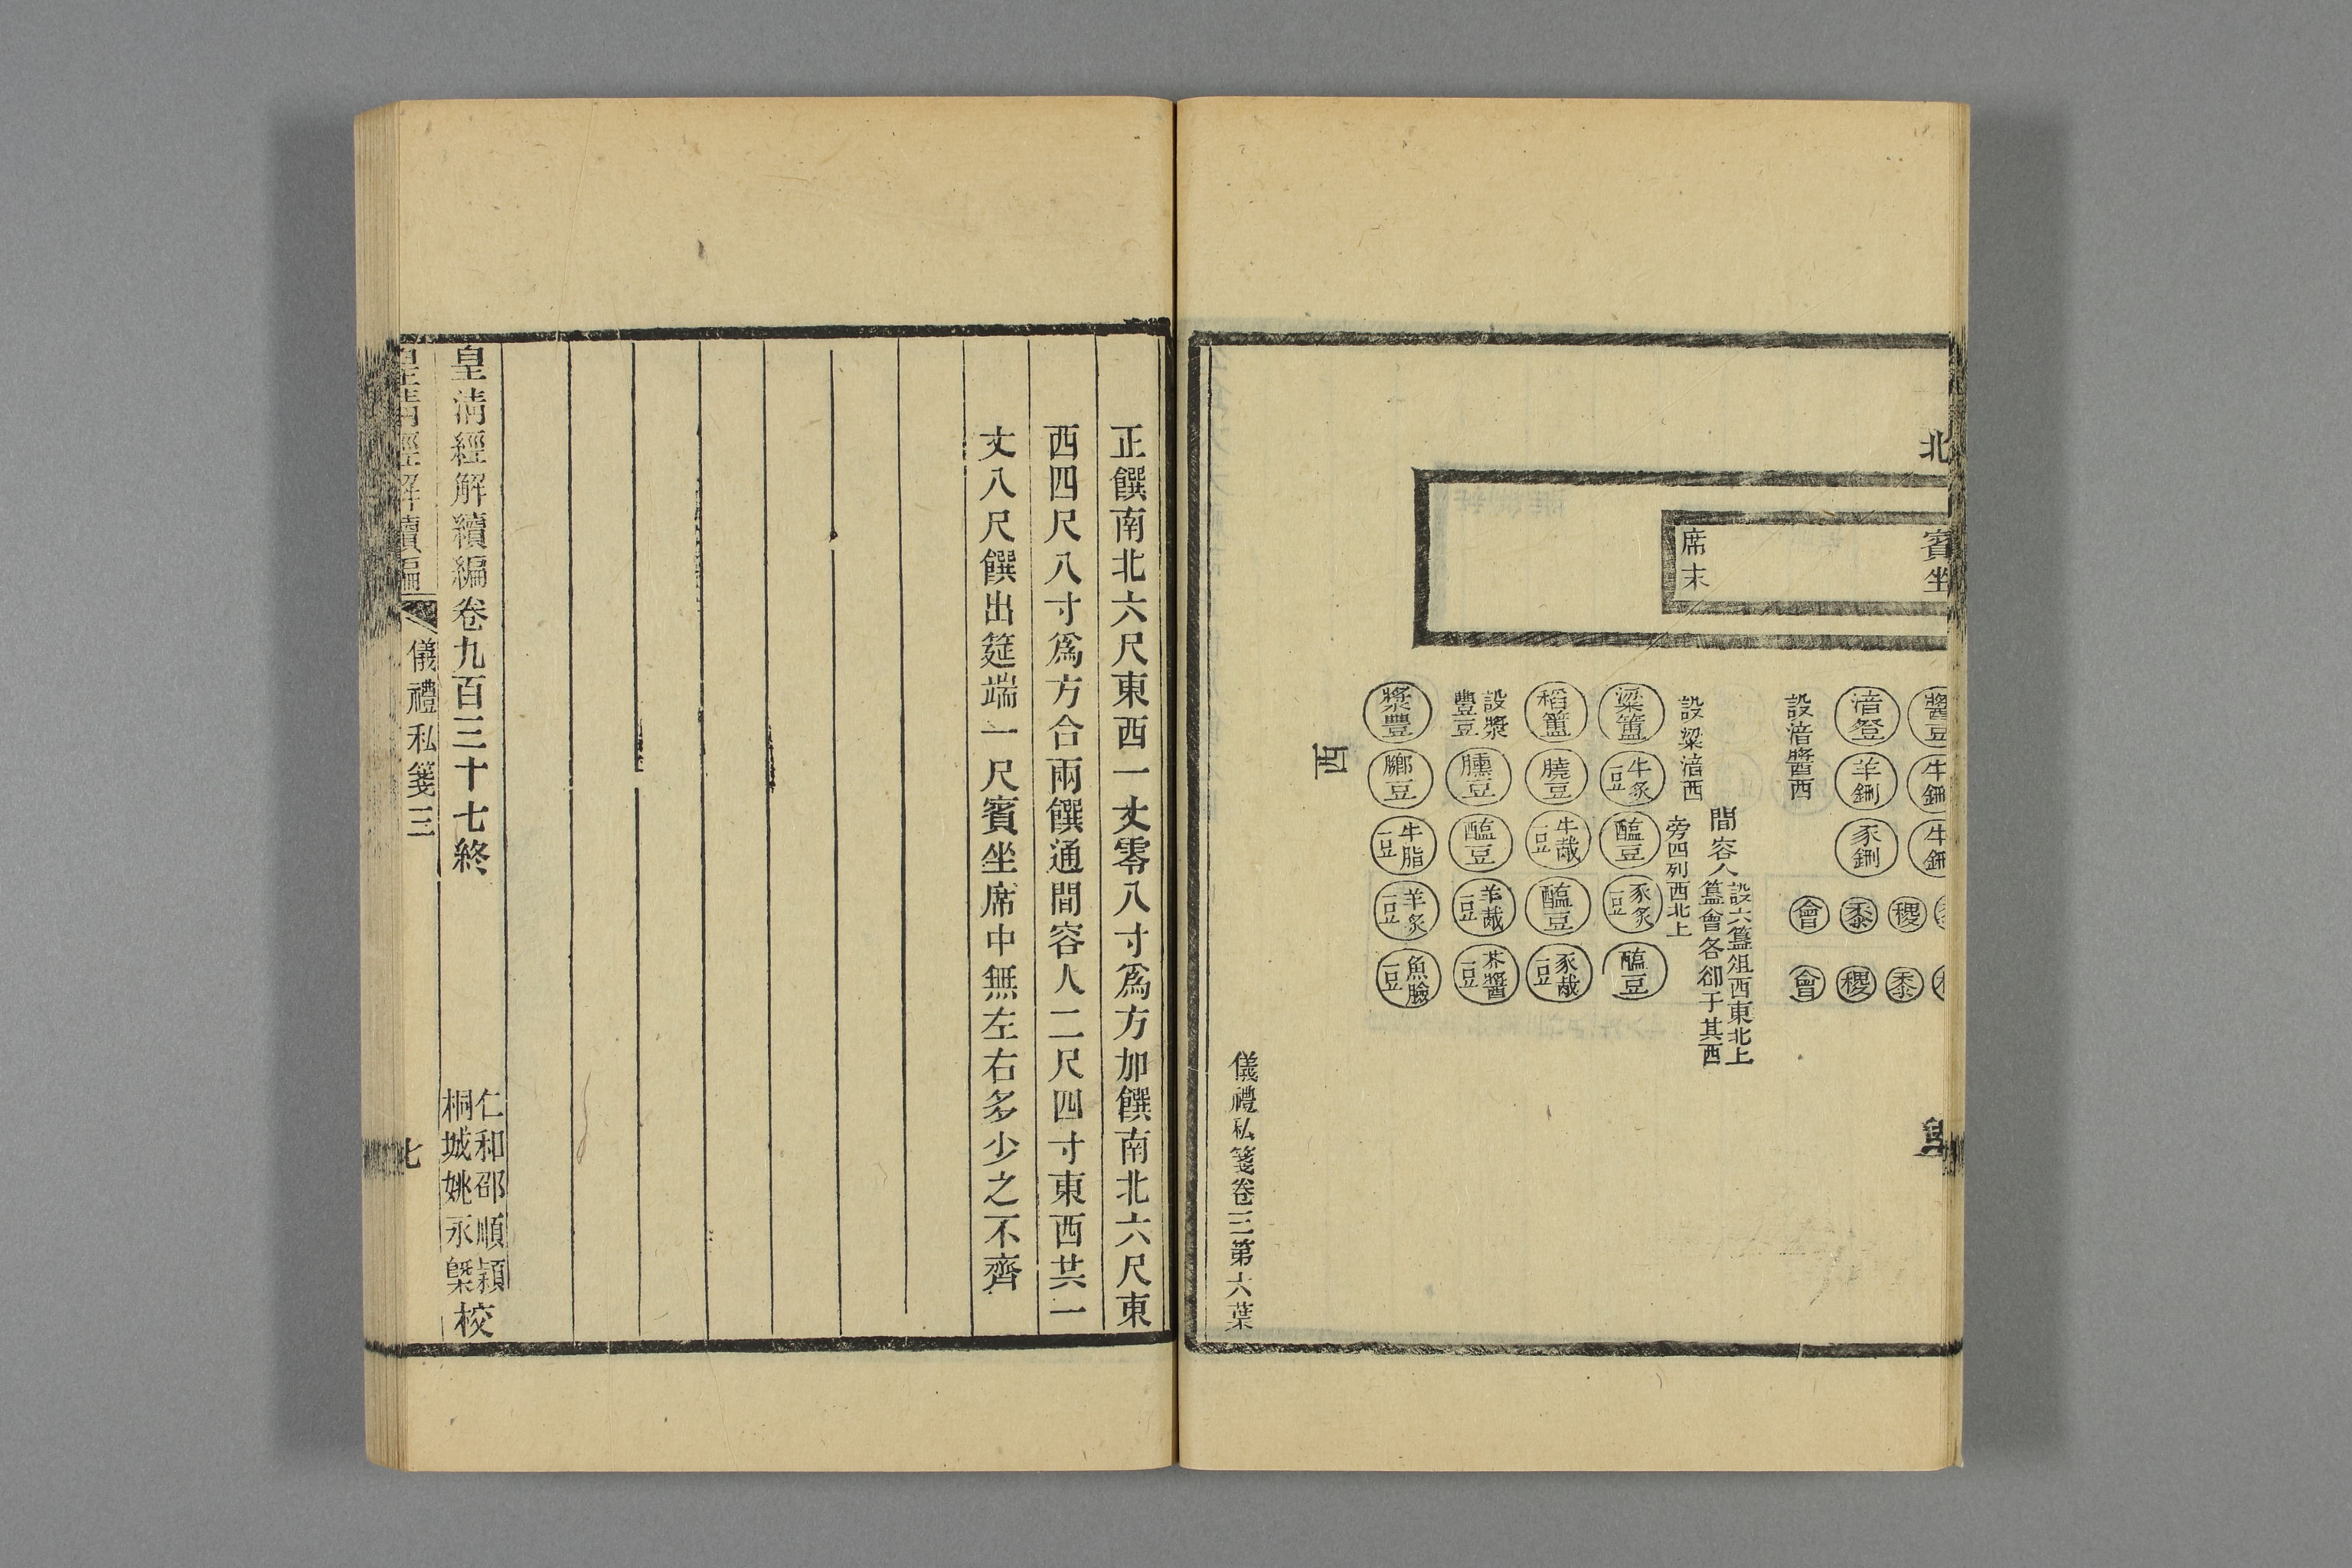 北
賓坐
席末
醬豆
牛鉶
牛鉶
湆鐙
羊鉶
豕鉶
稷
黍
會
黍
稷
會
設湆醬西
間容人
設六簋俎西東北上
簋會各卻于其西
設粱湆西
旁四列西北上
粱簠
牛炙豆
醢豆
豕炙豆
醢豆
稻簠
膮豆
牛胾豆
醢豆
豕胾豆
設漿
豐豆
臐豆
醢豆
羊胾豆
芥醬豆
漿豐
膷豆
牛脂豆
羊炙豆
魚膾豆
西
儀禮私箋卷三第六葉
正饌南北六尺東西一丈零八寸爲方加饌南北六尺東
西四尺八寸爲方合兩饌通間容人二尺四寸東西共一
丈八尺饌出筵端一尺賓坐席中無左右多少之不齊
皇淸經解續編卷九百三十七終
仁和邵順潁
桐城姚永㮣
校
皇淸經解續編
儀禮私箋三
七